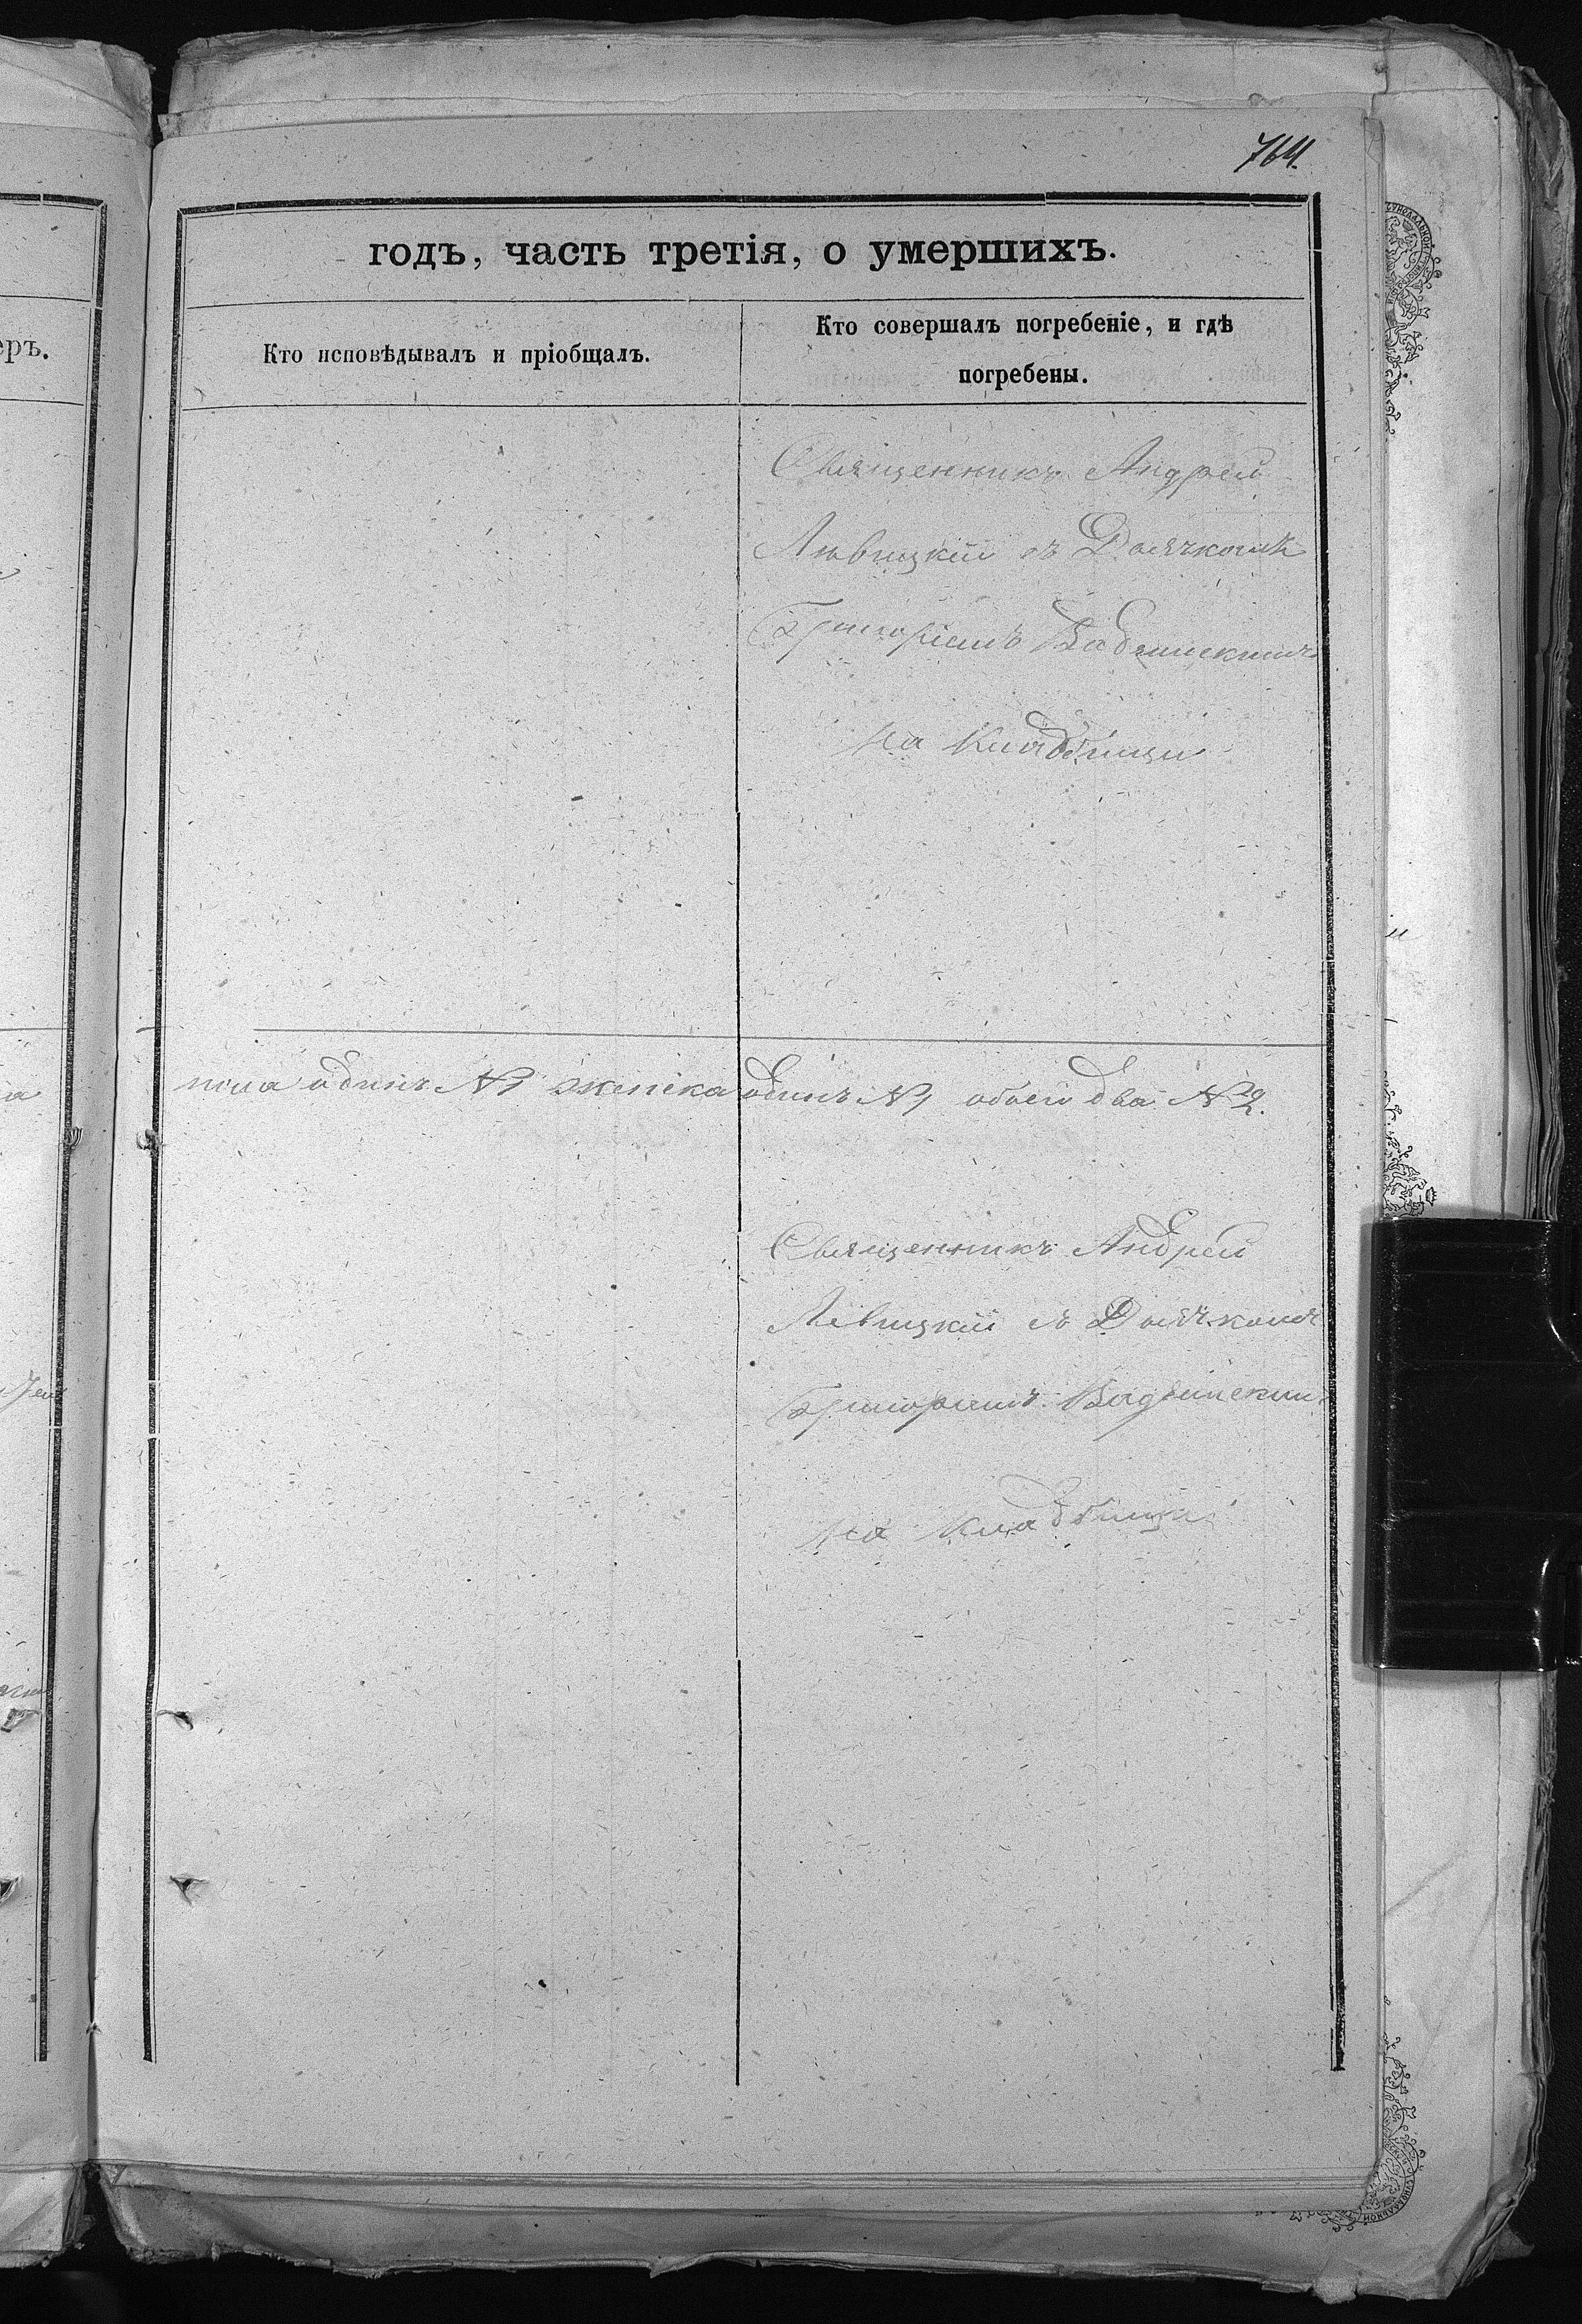 764.
годъ, часть третія, о умершихъ.
Кто исповѣдывалъ и пріобщалъ.
Кто совершалъ погребеніе, и гдѣ
погребены.
еръ.
Священникъ Андрей
Левицкій съ Дьячкомъ
Григоріемъ
на кладбищи
пола одинъ №1 женска одинъ №1 обоего два №2.
Священникъ Андрей
Левицкій съ Дьячкомъ
Григоріемъ
на кладбищи